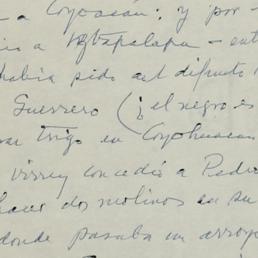 a Coyoacán: y por -
a Yxtapalapa - ent
había sido del difunto
Guerrero (¡el negro es
trigo en Coyohuacan
virrey concedió a Pedro
hacer dos molinos en su
donde pasaba un arroyo